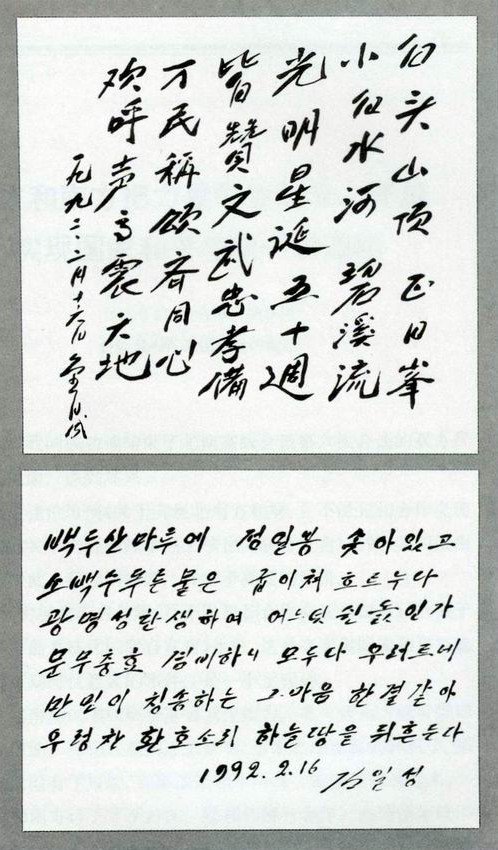 白头山顶正日峯
小白水河碧溪流
光明星诞五十週
皆贊文武忠孝備
万民稱頌齐同心
欢呼声高震天地
一九九二年二月十六日 金日成
백두산마루에 정일봉 솟아있고
소백수푸른물은 굽이쳐 흐르누나
광명성탄생하여 어느덧 쉰돐인가
문무충효 겸비하니 모두다 우러르네
만민이 칭송하는 그마음 한결같아
우렁찬 환호소리 하늘땅을 뒤흔든다
1992.2.16 김일성